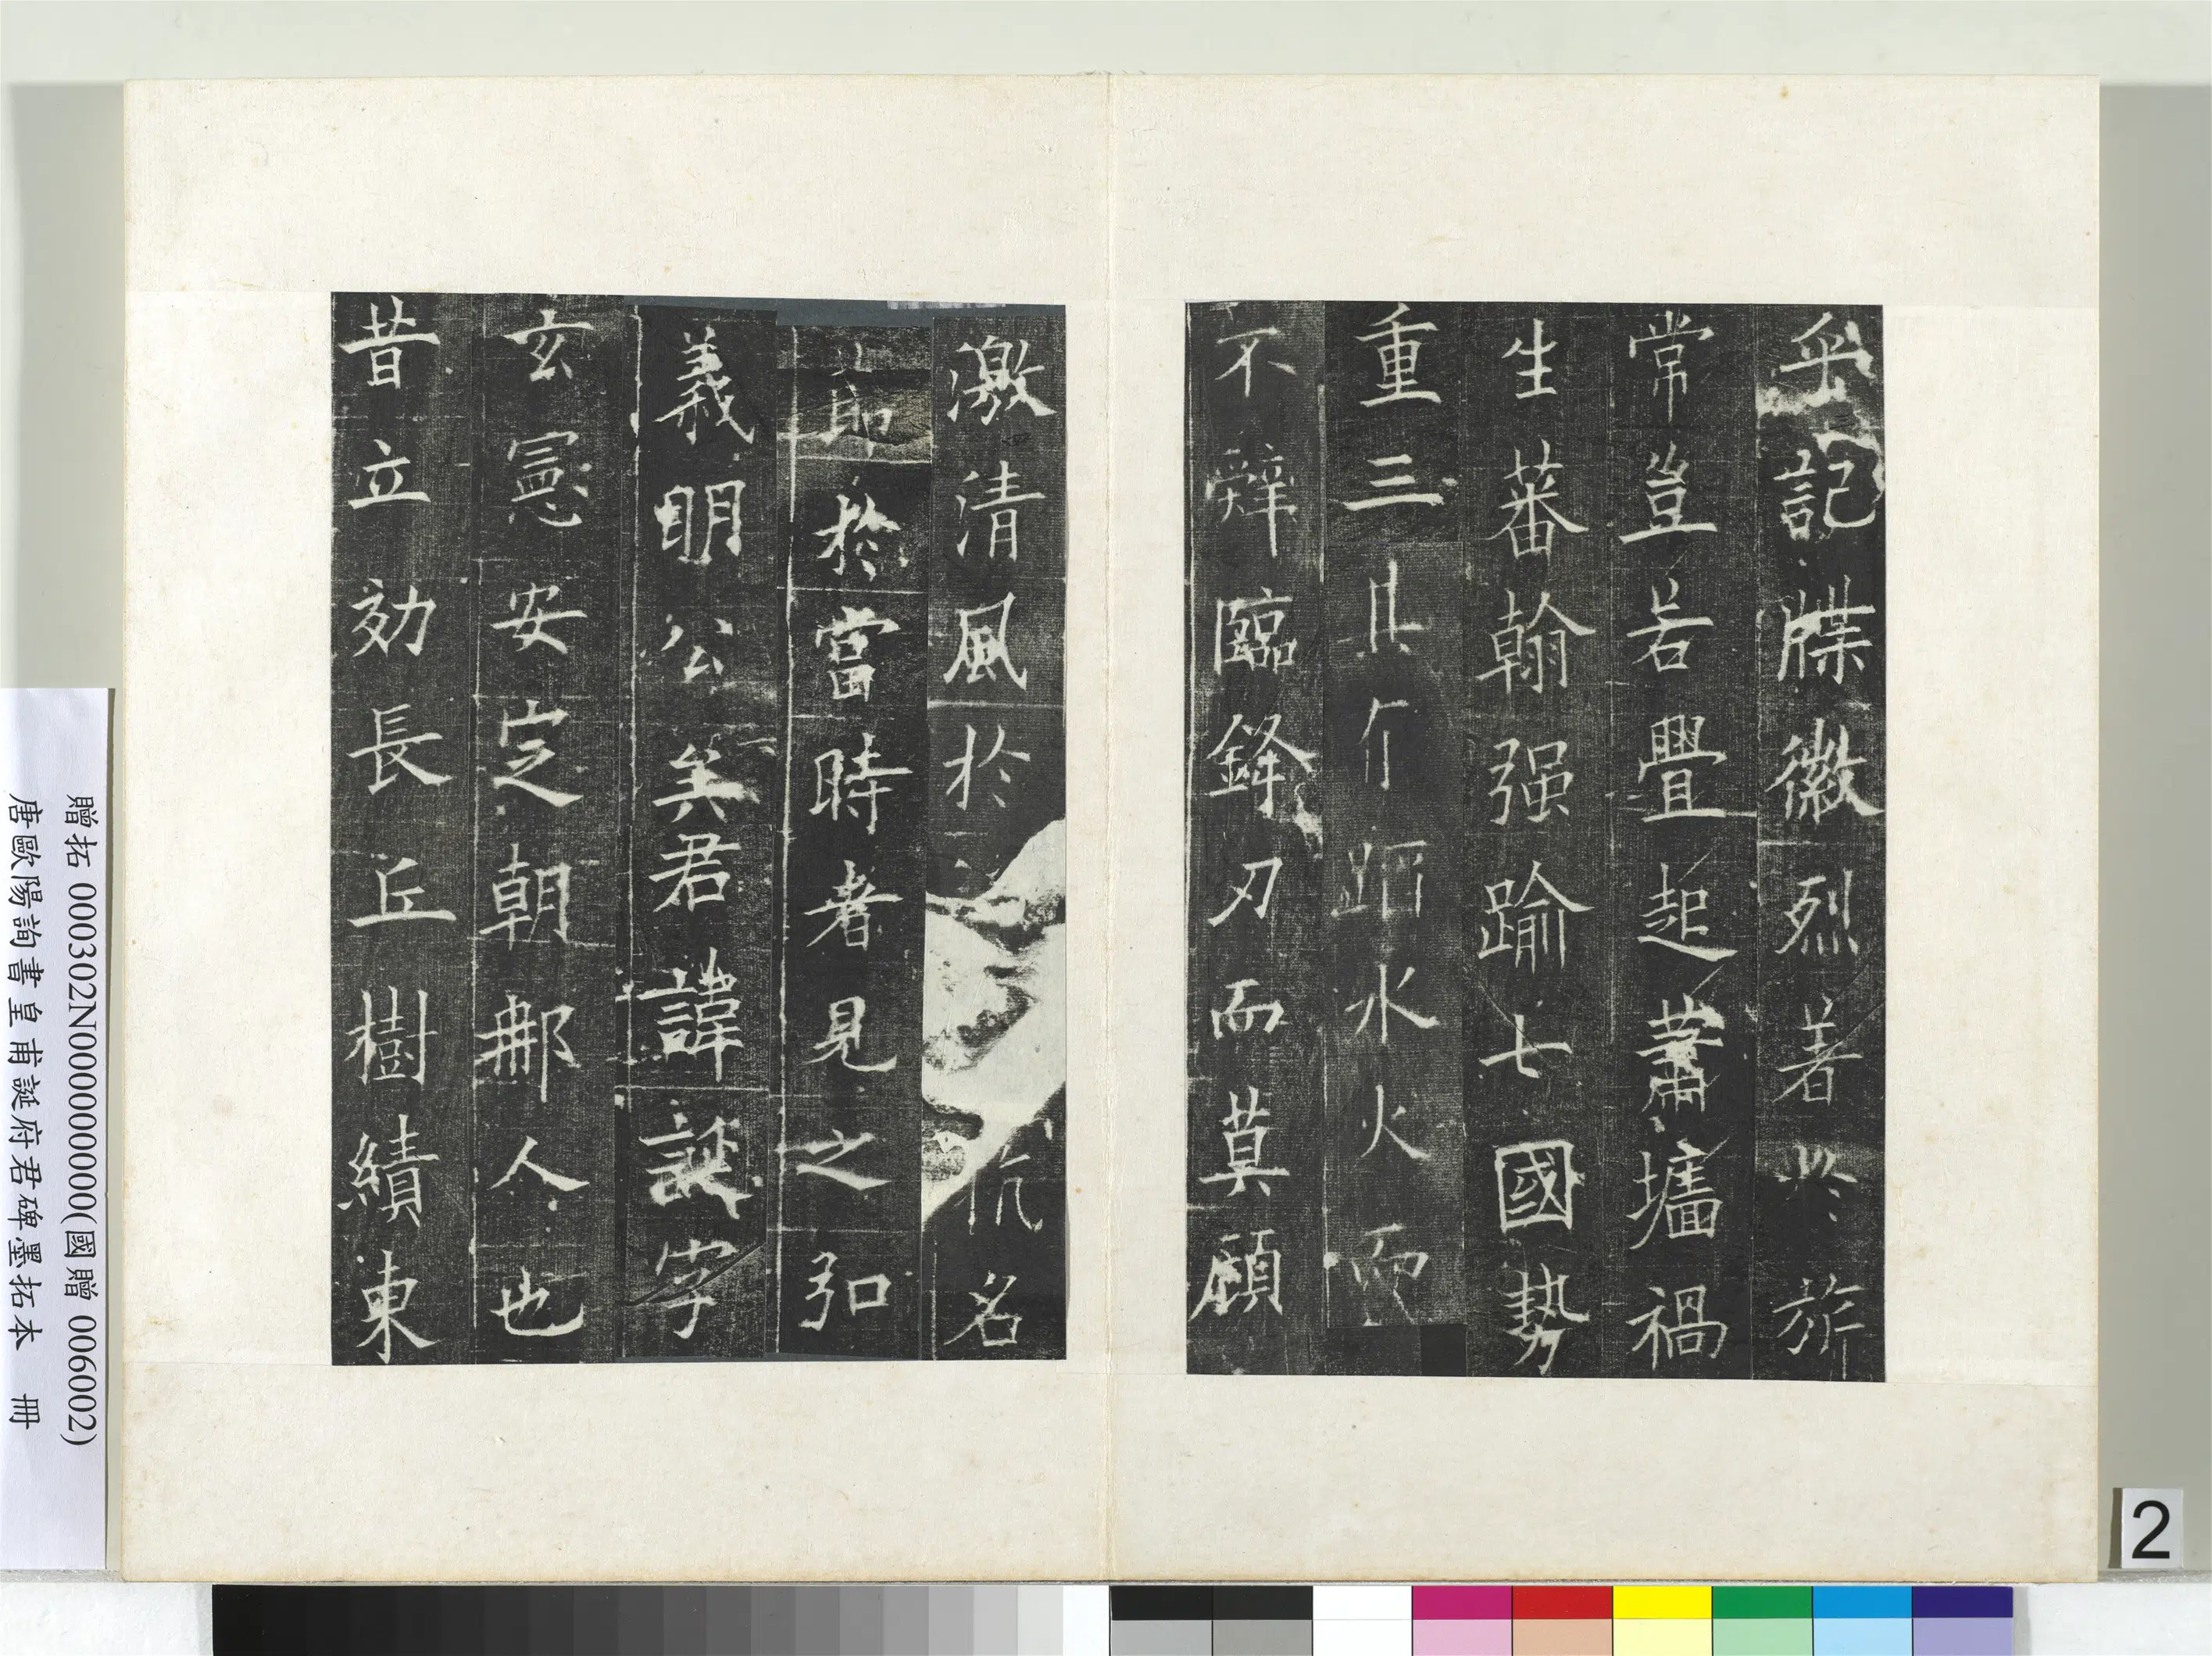 乎記牒徽烈著於旂
常豈若舋起蕭墻禍
生蕃翰强踰七國勢
重三蹈水火而
不辭臨鋒刃而莫顧
激清風於抗名
節於當時者見之弘
義明公矣君諱誕字
玄憲安定朝那人也
昔立効長丘樹績東
贈拓 000302N000000000(國贈 006002)
唐歐陽詢書皇甫誕府君碑墨拓本 冊
2